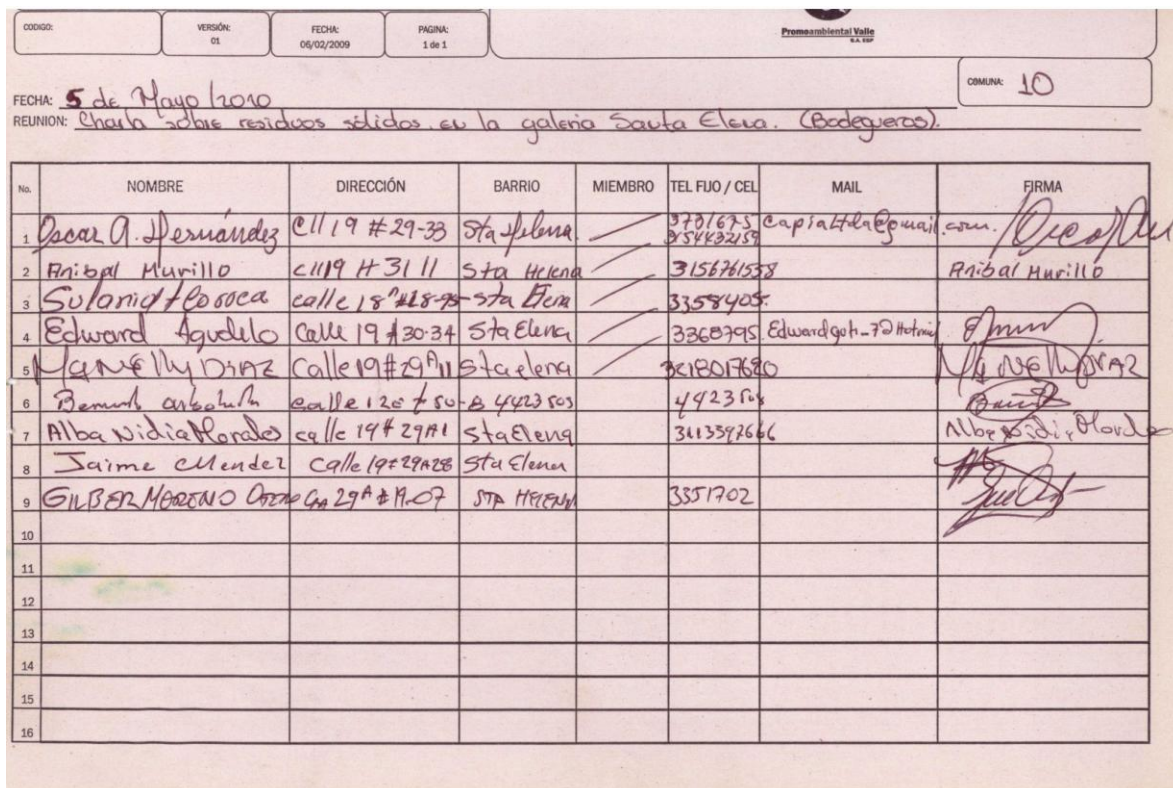 CODIGO:
VERSIÓN:
01
FECHA:
06/02/2009
PAGINA:
1 de 1
Promoambiental Valle
S.A. ESP
COMUNA: 10
FECHA: 5 de Mayo/2010
REUNION: Charla sobre residuos sólidos en la galeria Santa Elena. (Bodegueros).
No. NOMBRE DIRECCIÓN BARRIO MIEMBRO TEL FIJO / CEL MAIL FIRMA
1 Oscar A. Hernández Cll 19 #29-33 Sta Helena. 3154432159
2 Anibal Murillo cll19 # 31 11 Sta Helena 3156761538 Anibal Murillo
3 calle 18 Sta Elena 3358405.
4 Edward Agudelo Calle 19 #30-34 Sta Elena 3368795
5 Ma Nelly DIAZ Calle 19 #29A11 Sta elena Ma Nelly DIAZ
6 4423503
7 Alba Nidia Morales calle 19 # 29A1 Sta Elena Alba Nidia Morales
8 Jaime Mendez Calle 19 #29A28 Sta Elena
9 GILBER MORENO 29A # 19-07 STA HELENA 3351702
10
11
12
13
14
15
16